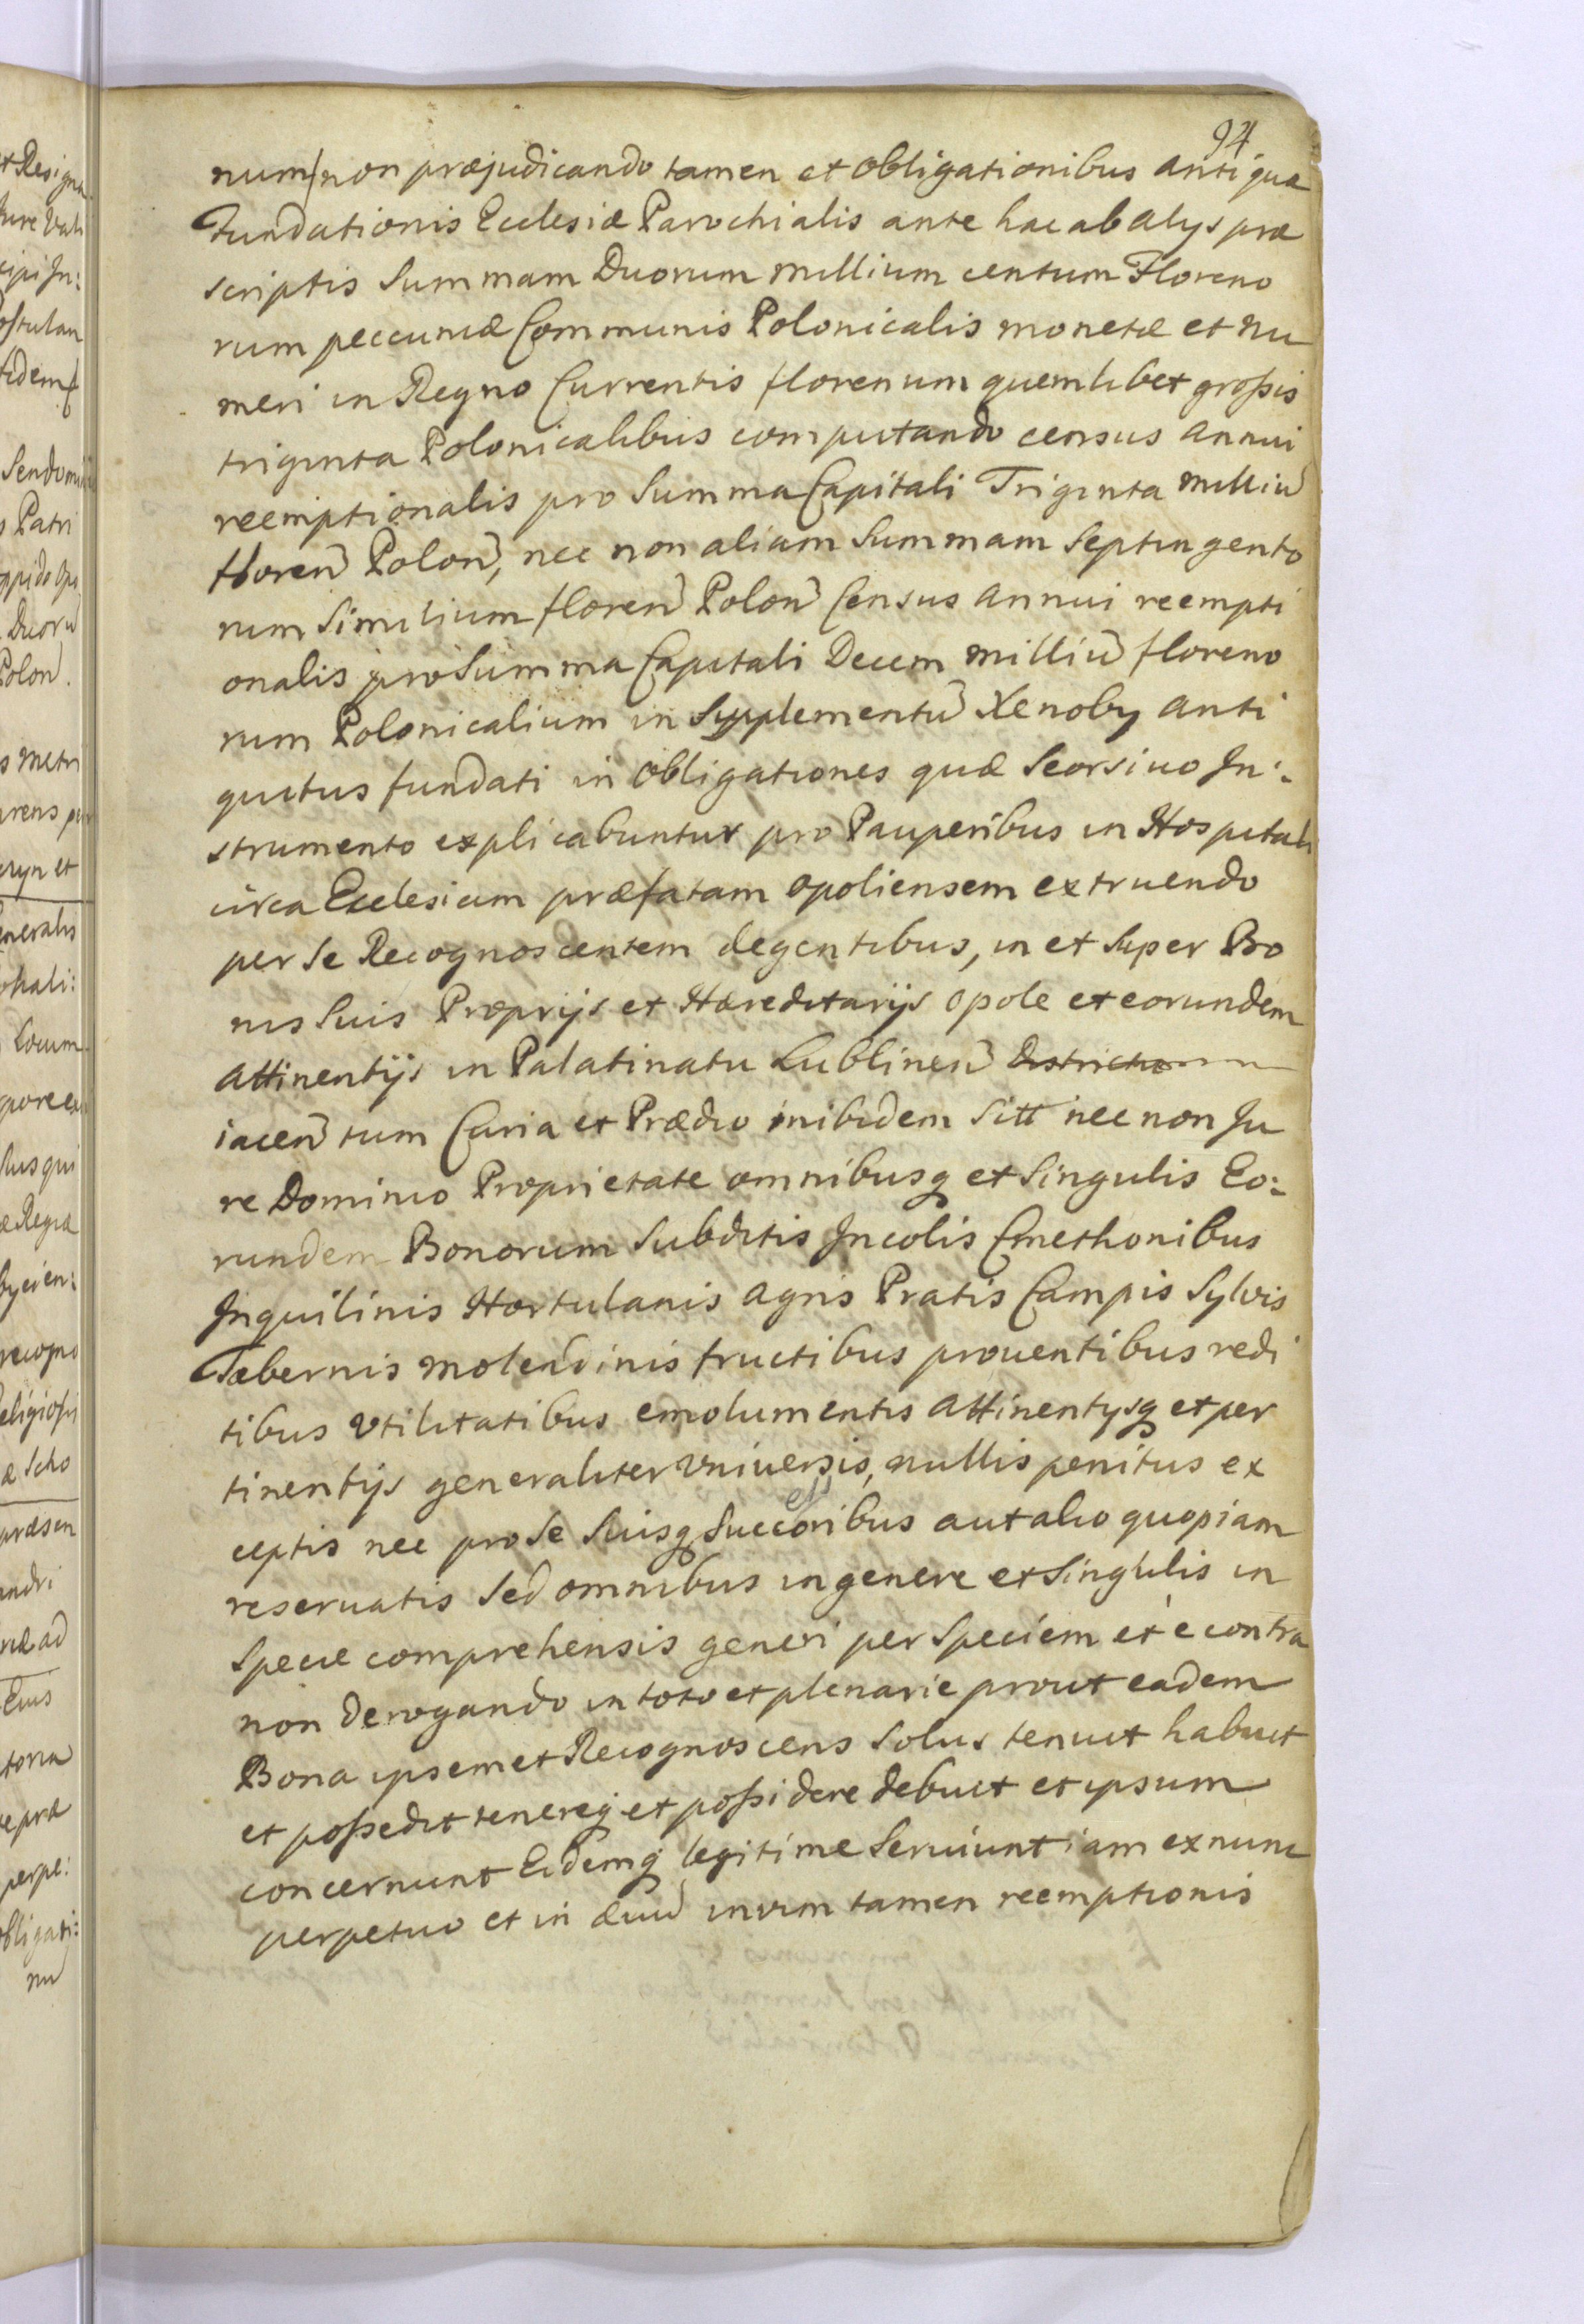 94
num/non præjudicando tamen et obligationibus antiquæ
Fundationis Ecclesiæ Parochialis ante hac ab alys præ
scriptis Summam Duorum millium centum Floreno
rum peccuniæ Communis Polonicalis monetæ et nu
meri in Regno Currentis florenum quemlibet großis
triginta Polonicalibus computando census annui
reemptionalis pro Summa Capitali Triginta milliũ
floreñ Poloñ, nec non aliam Summam Septingento
rum Similium floreñ Poloñ Census annui reempti
onalis pro Summa Capitali Decem milliũ floreno
rum Polonicalium in Supplementũ Xenoby anti
quitus fundati in obligationes quæ Seorsiuo In:
strumento explicabuntur pro Pauperibus in Hospitali
circa Ecclesiam præfatam Opoliensem extruendo
per Se Recognoscentem degentibus, in et Super Bo
nis Suis Proprijs et Hæreditarijs Opole et eorundem
attinentijs in Palatinatu Lublineñ Districtu
iaceñ tum Curia et Prædio inibidem Sitt nec non Ju
re Dominio Proprietate omnibusq et Singulis Eo:
rundem Bonorum Subditis Incolis Cmethonibus
Inquilinis Hortulanis agris Pratis Campis Sylvis
Tabernis molendinis fructibus prouentibus redi
tibus Vtilitatibus emolumentis attinentysq et per
tinentijs generaliter Vniuersis, nullis penitus ex
ceptis nec pro Se Suisq Succoribus aut alio quopiam
ess
reseruatis Sed omnibus in genere et Singulis in
Specie comprehensis generi per Speciem et è contra
non derogando in toto et plenarie prout eadem
Bona ipsemet Recognoscens Solus tenuit habuit
et poßedit tenereq et poßidere debuit et ipsum
concernunt Eidemq legitime Seruiunt iam ex nunc
perpetuo et in æuũ in vim tamen reemptionis